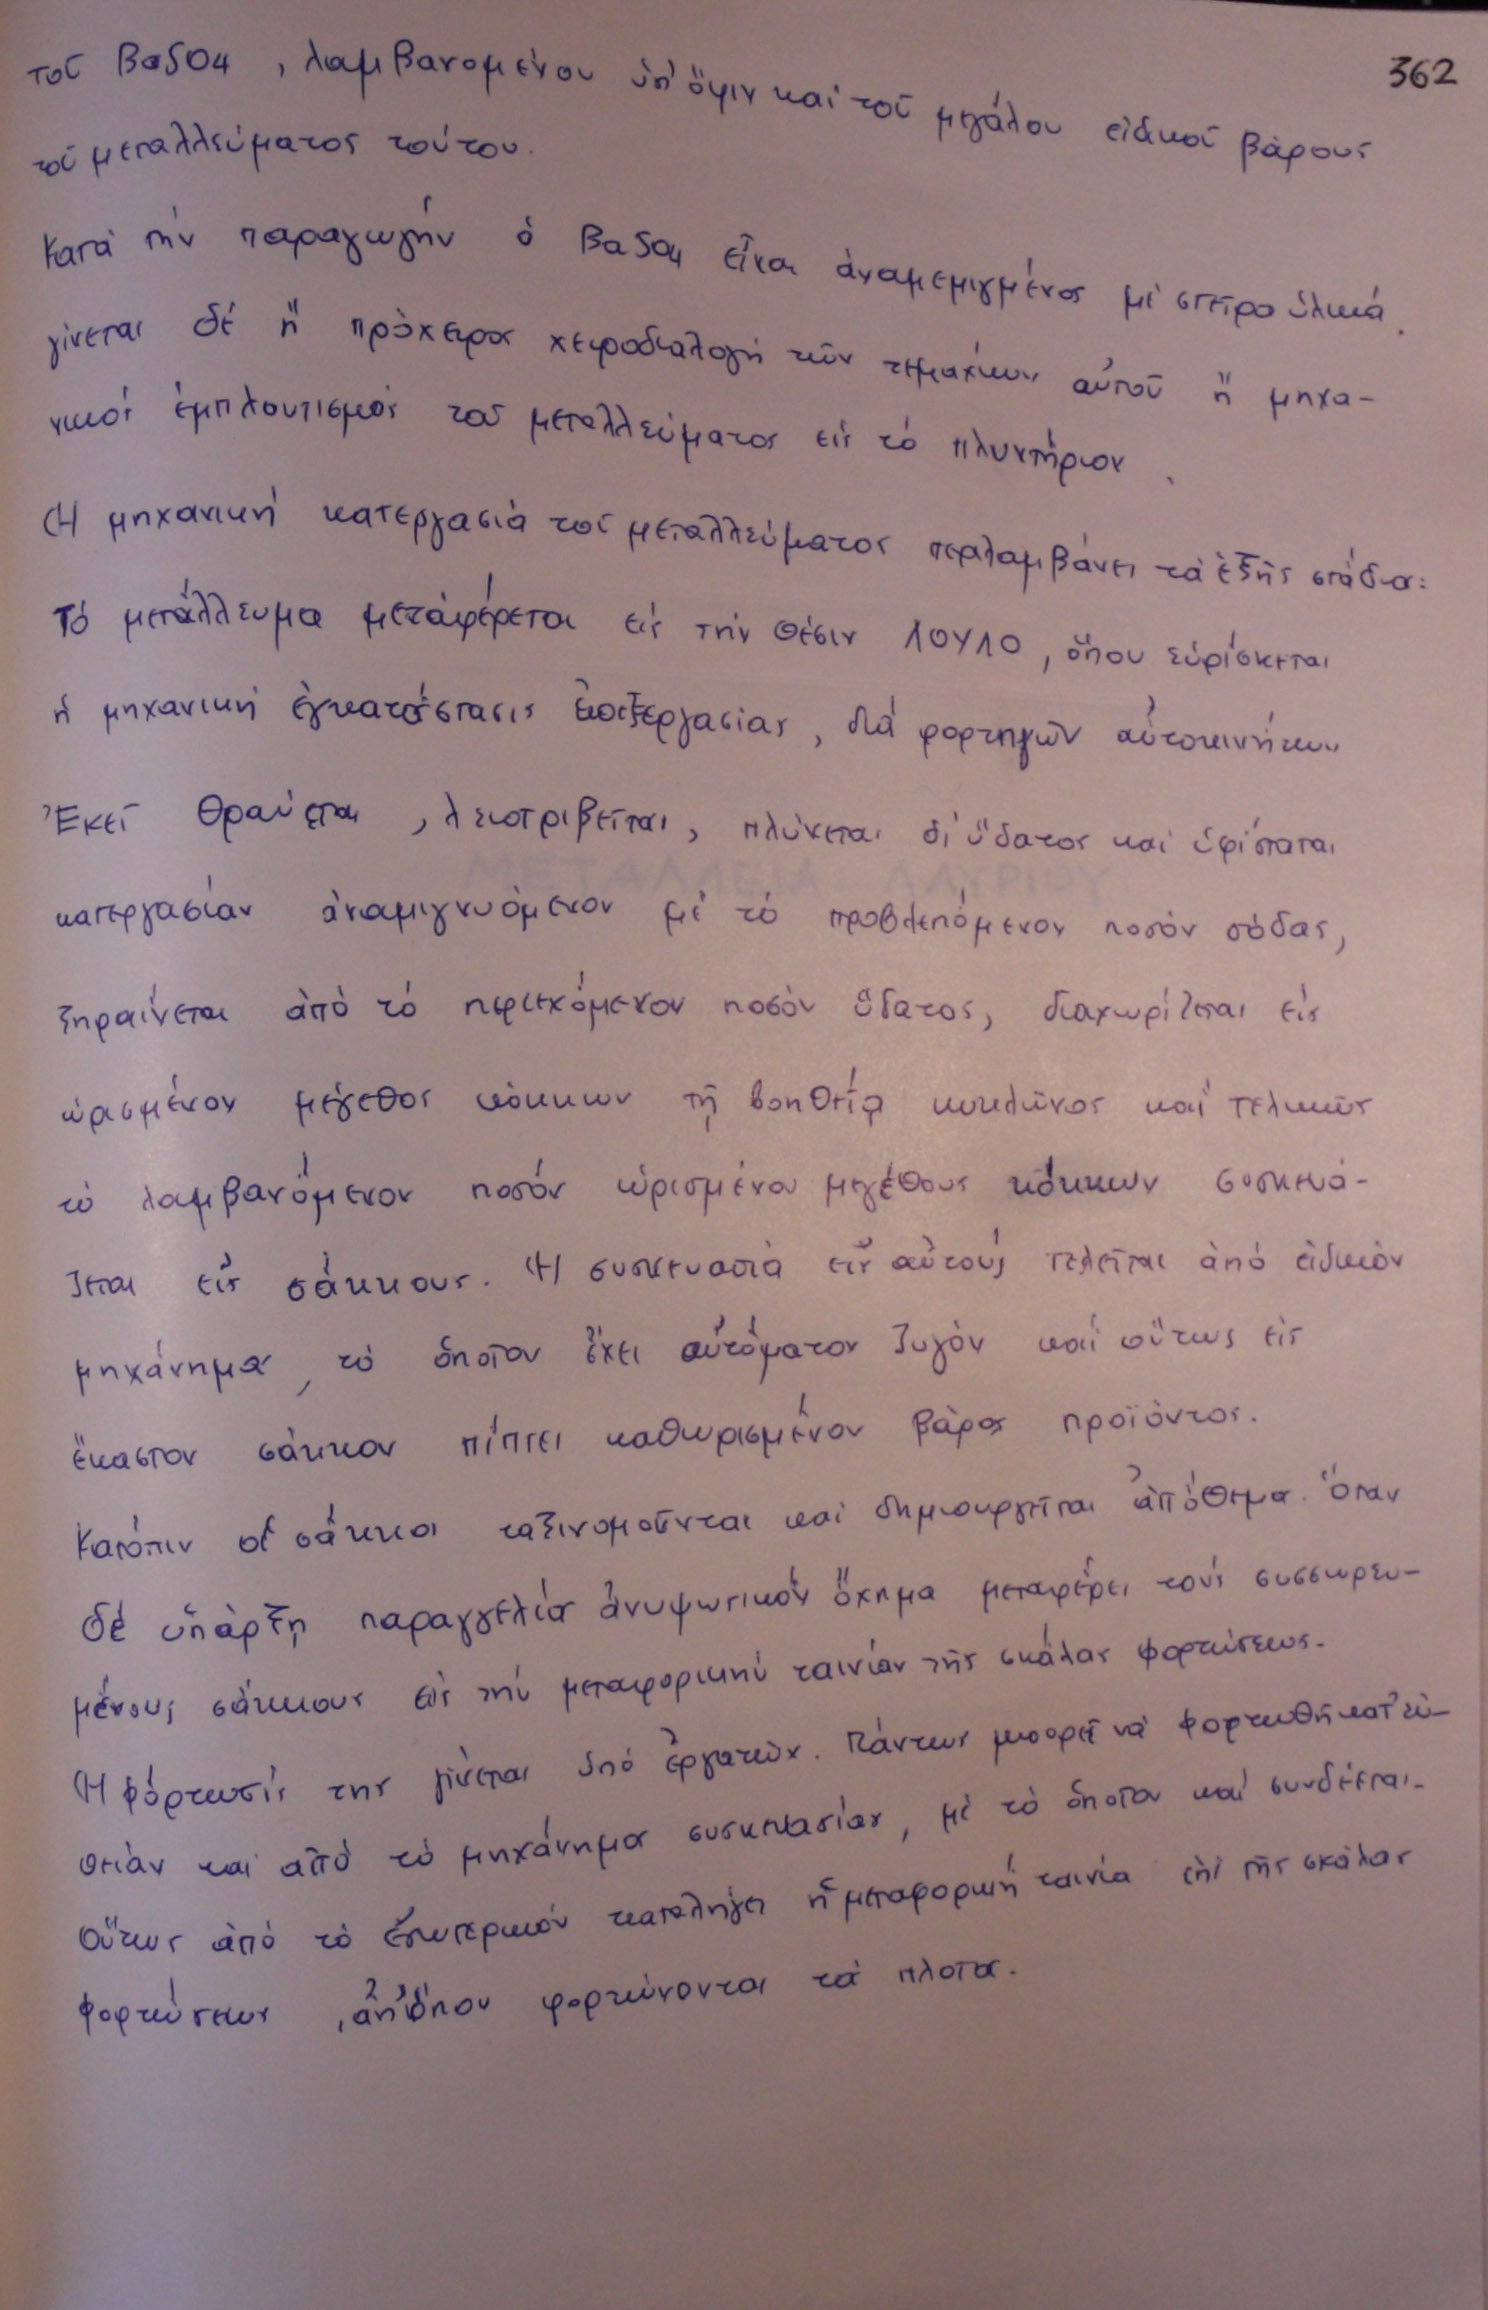 362
τοῦ BaSO4 , λαμβανομένου ὑπ' ὄψιν καί τοῦ μεγάλου εἰδικοῦ βάρους
τοῦ μεταλλεύματος τούτου.
Κατά τήν παραγωγήν ὁ BaSO4 εἶναι ἀναμεμιγμένος μέ στεῖρα ὑλικά.
γίνεται δέ ἤ πρόχειρος χειροδιαλογή τῶν τεμαχίων αὐτοῦ ἤ μηχα-
νικός ἐμπλουτισμός τοῦ μεταλλεύματος εἰς τό πλυντήριον .
Ἡ μηχανική κατεργασία τοῦ μεταλλεύματος περιλαμβάνει τά ἑξῆς στάδια:
Τό μετάλλευμα μεταφέρεται εἰς τήν θέσιν ΛΟΥΛΟ, ὅπου εὑρίσκεται
ἡ μηχανική ἐγκατάστασις ἐπεξεργασίας, διά φορτηγῶν αὐτοκινήτων
Ἐκεῖ θραύεται , λειοτριβεῖται, πλύνεται δι' ὕδατος καί ὑφίσταται
ΜΕΤΑΛΛΕΙΑ ΛΑΥΡΙΟΥ
κατεργασίαν ἀναμιγνυόμενον μέ τό προβλεπόμενον ποσόν σόδας,
ξηραίνεται ἀπό τό περιεχόμενον ποσόν ὕδατος, διαχωρίζεται εἰς
ὡρισμένον μέγεθος κόκκων τῇ βοηθείᾳ κυκλῶνος καί τελικῶς
τό λαμβανόμενον ποσόν ὡρισμένου μεγέθους κόκκων συσκευά-
ζεται εἰς σάκκους. Ἡ συσκευασία εἰς αὐτούς τελεῖται ἀπό εἰδικόν
μηχάνημα, τό ὁποῖον ἔχει αὐτόματον ζυγόν καί οὕτως εἰς
ἕκαστον σάκκον πίπτει καθωρισμένον βάρος προϊόντος.
Κατόπιν οἱ σάκκοι ταξινομοῦνται καί δημιουργεῖται ἀπόθεμα. Ὅταν
δέ ὑπάρξῃ παραγγελία ἀνυψωτικόν ὄχημα μεταφέρει τούς συσσωρευ-
μένους σάκκους εἰς τήν μεταφορικήν ταινίαν τῆς σκάλας φορτώσεως.
Ἡ φόρτωσίς της γίνεται ὑπό ἐργατῶν. Πάντως μπορεῖ νά φορτωθῆ κατ' εὐ-
θείαν καί ἀπό τό μηχάνημα συσκευασίας, μέ τό ὁποῖον καί συνδέεται.
Οὕτως ἀπό τό ἐσωτερικόν καταλήγει ἡ μεταφορική ταινία ἐπί τῆς σκάλας
φορτώσεως , ἀπ' ὅπου φορτώνονται τά πλοῖα.